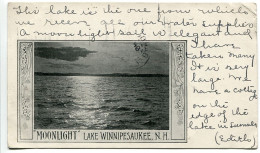 This lake is the one from which
we receive all our water supplies
A moonlight sail is elegant and
I have
taken many
It is very
large. We
have a cottage
on the
edge of the
lake in
(Edith)
"MOONLIGHT" LAKE WINNIPESAUKEE, N.H.